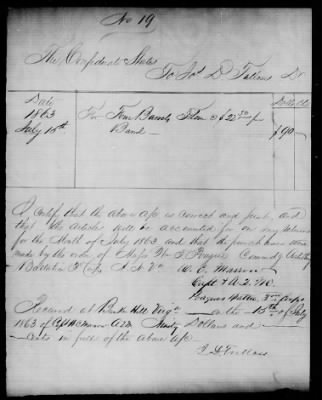 No 19
The Confederate States
To Jos D Fallons Dr
Date
1863
July 15th
For Four Barrels Flour @ $22 50 pr
Barrel
Dolls Cts
$90
I certify that the above a/c is correct and just, and
that the articles will be accounted for on my return
for the Month of July 1863 and that the purchase were
made by the order of Major Wm T. Poague Commdg Artillery
Battalion 3rd Corps A. N. Va. W. C. Marrow
Capt & A.Q.M.
3rd Corps
Received at Bunker Hill Virga on the 15th of July
1863 of Capt Marrow AQM Ninety Dollars and
cents in full of the above a/c
J D Fallons